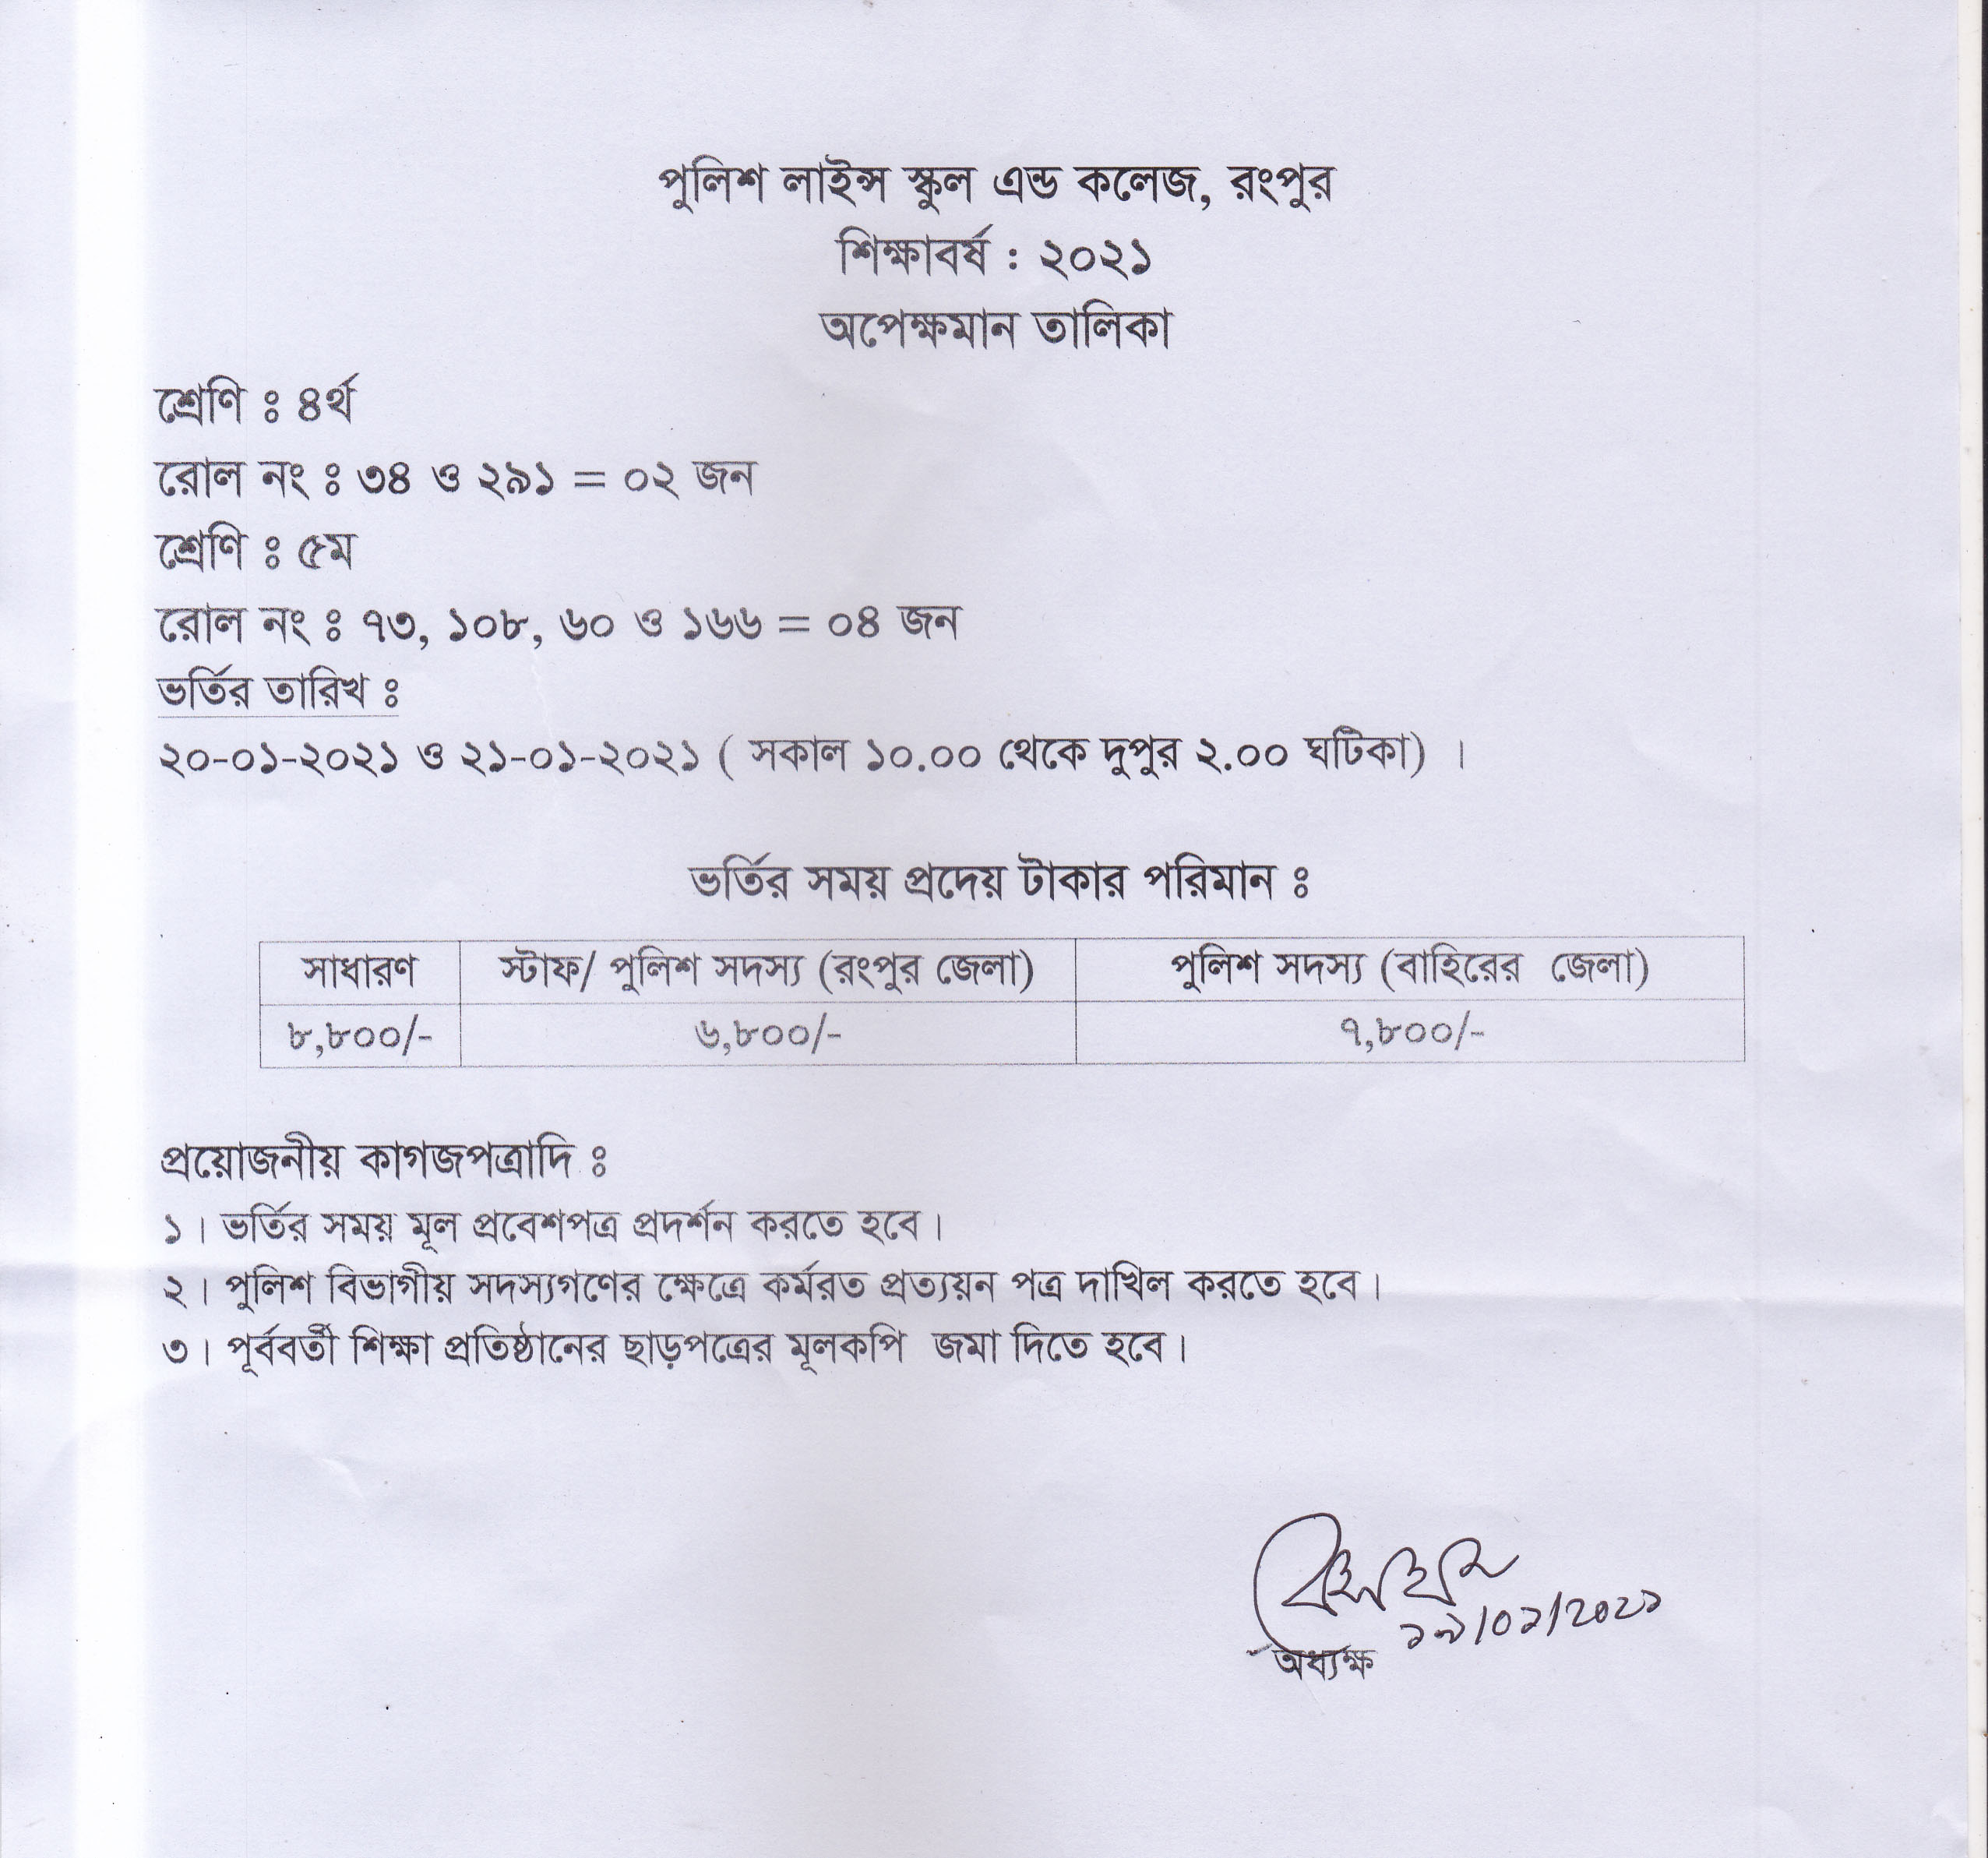 পুলিশ লাইন্স স্কুল এন্ড কলেজ, রংপুর
শিক্ষাবর্ষ : ২০২১
অপেক্ষমান তালিকা
শ্রেণি ঃ ৪র্থ
রোল নং ঃ ৩৪ ও ২৯১ = ০২ জন
শ্রেণি ঃ ৫ম
রোল নং ঃ ৭৩, ১০৮, ৬০ ও ১৬৬ = ০৪ জন
ভর্তির তারিখ ঃ
২০-০১-২০২১ ও ২১-০১-২০২১ ( সকাল ১০.০০ থেকে দুপুর ২.০০ ঘটিকা) ।
ভর্তির সময় প্রদেয় টাকার পরিমান ঃ
সাধারণ স্টাফ/ পুলিশ সদস্য (রংপুর জেলা) পুলিশ সদস্য (বাহিরের জেলা)
৮,৮০০/- ৬,৮০০/- ৭,৮০০/-
প্রয়োজনীয় কাগজপত্রাদি ঃ
১। ভর্তির সময় মূল প্রবেশপত্র প্রদর্শন করতে হবে।
২। পুলিশ বিভাগীয় সদস্যগণের ক্ষেত্রে কর্মরত প্রত্যয়ন পত্র দাখিল করতে হবে।
৩। পূর্ববর্তী শিক্ষা প্রতিষ্ঠানের ছাড়পত্রের মূলকপি জমা দিতে হবে।
১৯/০১/২০২১
অধ্যক্ষ